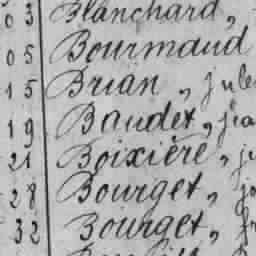 03 Blanchard,
05 Bourmaud
15 Brian, jules
19 Baudet, jea
21 Boixière, ju
28 Bourget, jo
32 Bourget, fr